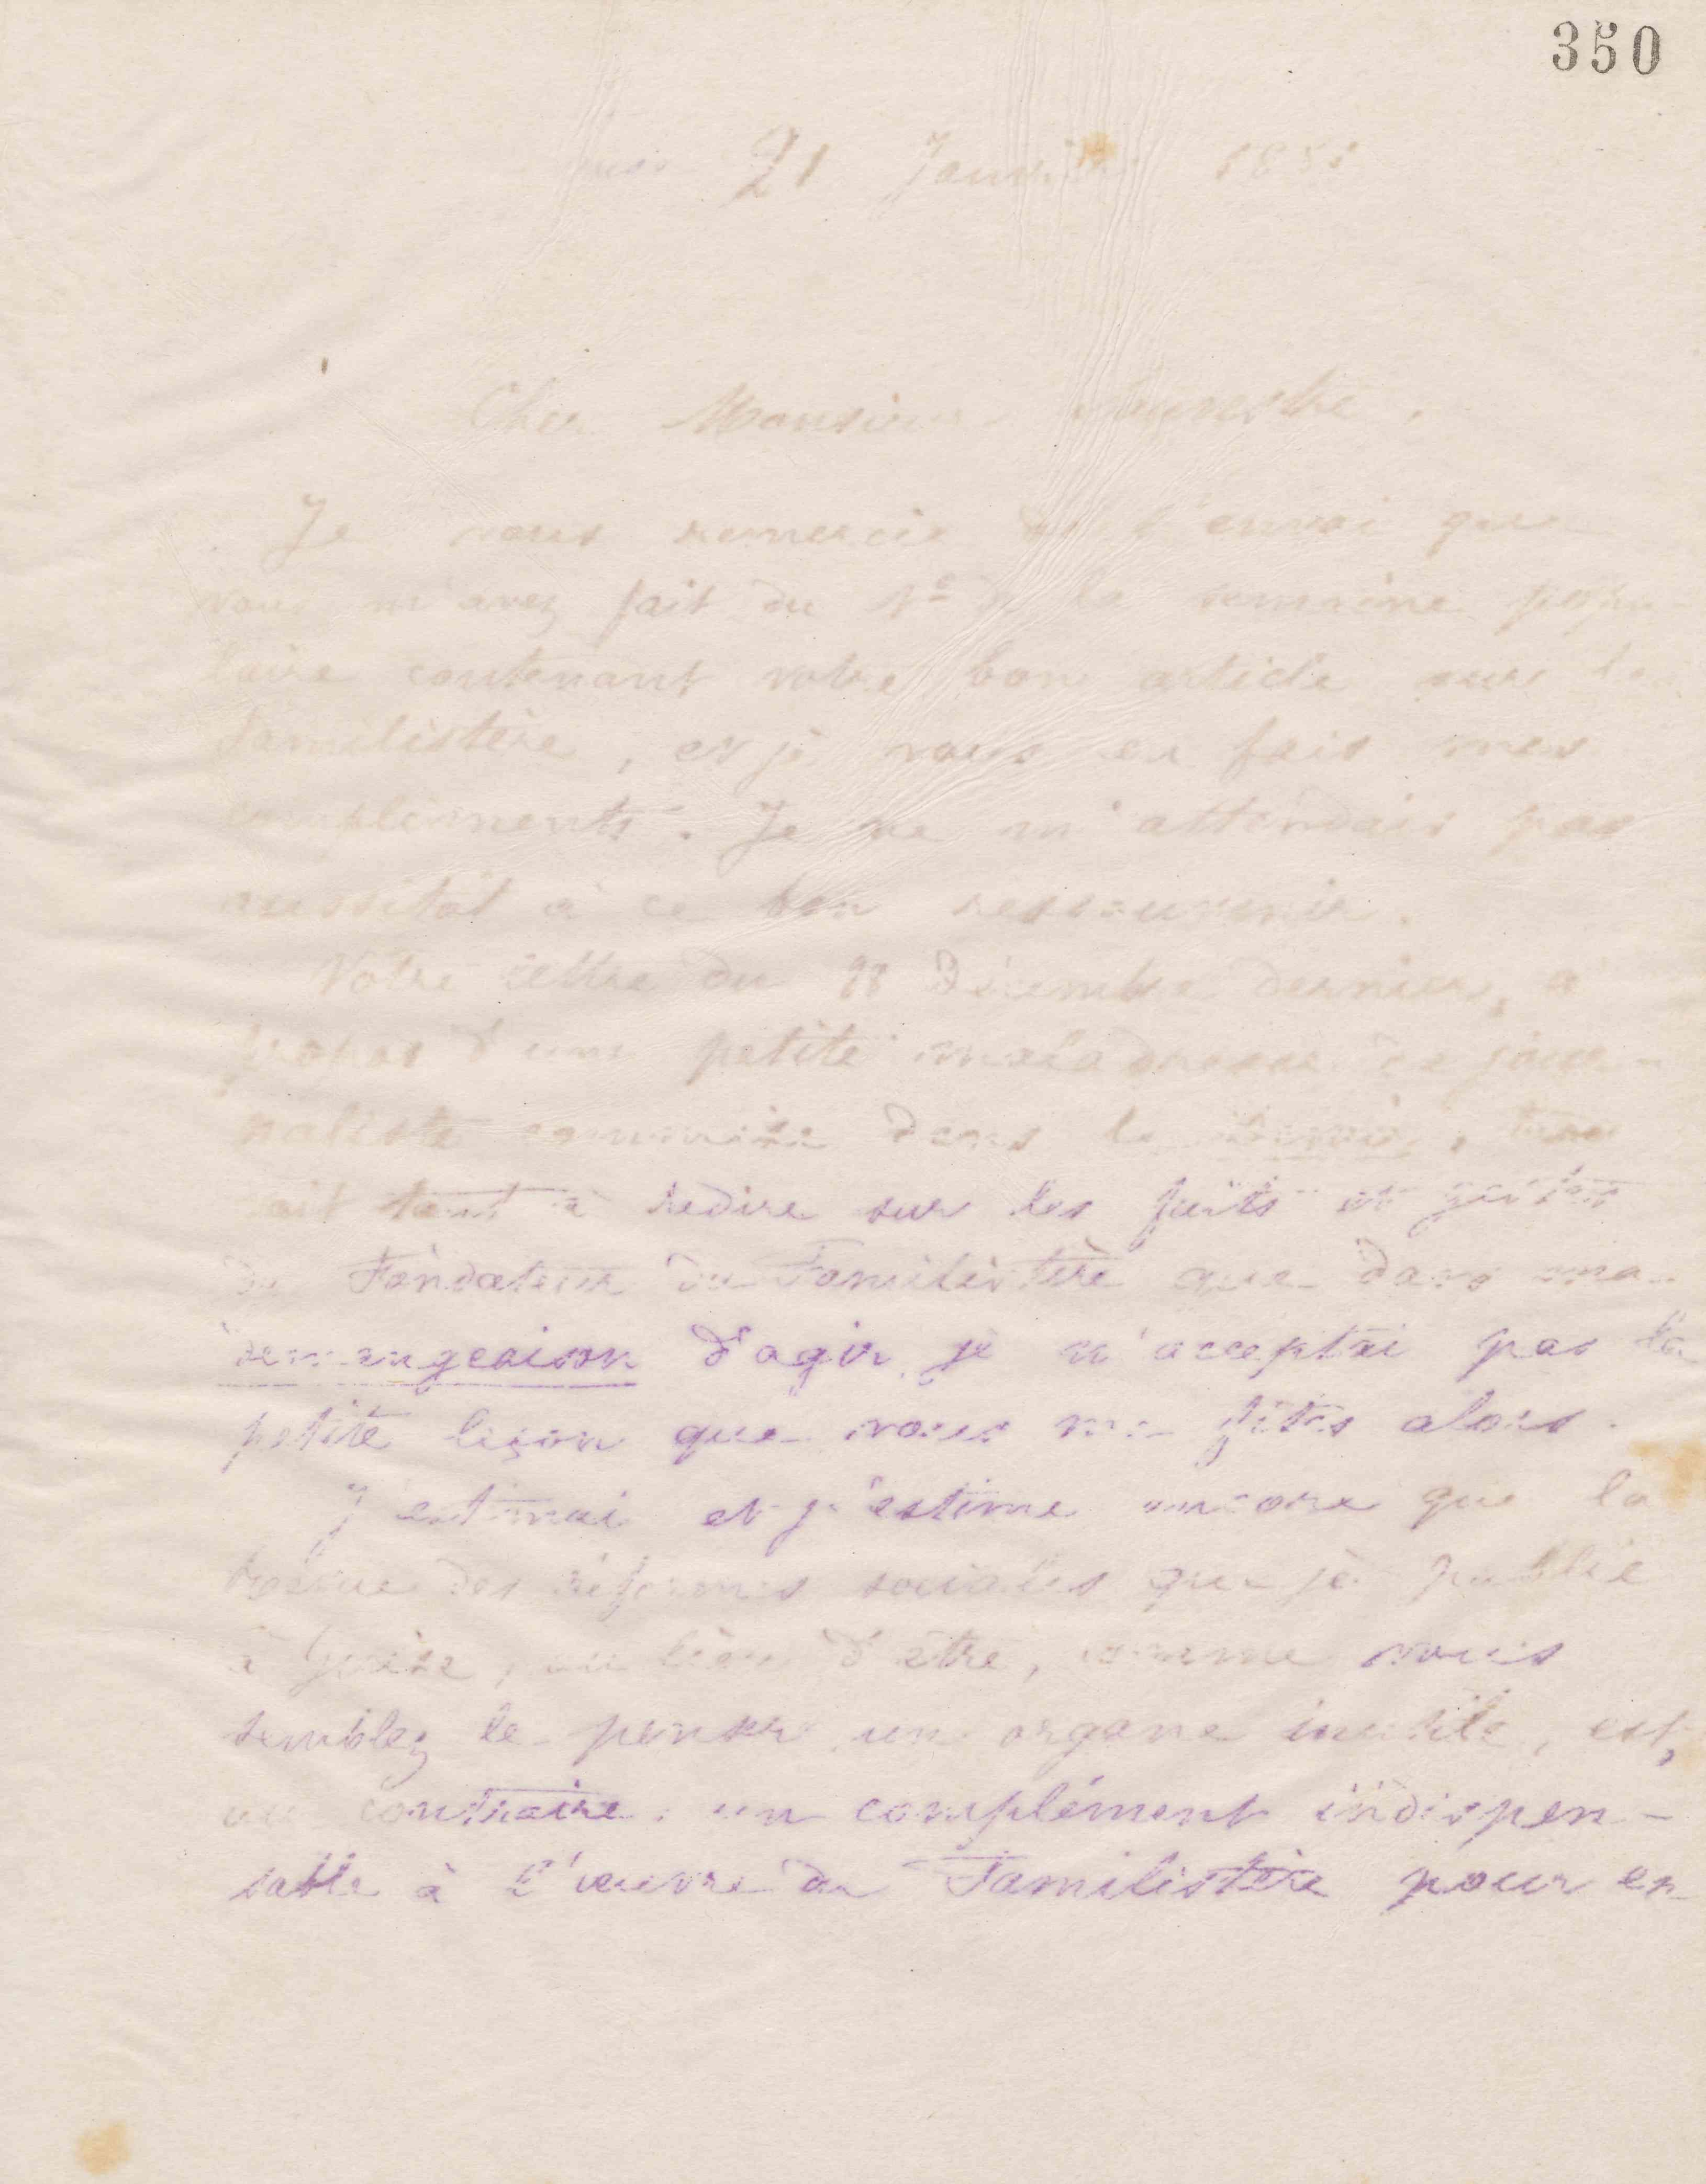 350
21 Janvier 188
Cher Monsieur
Je vous remercie de l'envoi que
vous m'avez fait du No de la semaine popu-
laire contenant votre bon article sur le
Familistère, et je vous en fais mes
compliments. Je ne m'attendais pas
aussitôt à ce bon ressouvenir.
Votre lettre du Décembre dernier, à
propos d'une petite maladresse de jour-
naliste commise dans le
tant à redire sur les faits et gestes
du Fondateur du Familistère que dans ma
demangeaison d'agir je n'acceptai pas la
petite leçon que vous me fites alors.
J'estimai et j'estime encore que la
Revue des réformes sociales que je publie
à Guise, au lieu d'être, comme vous
semblez le penser un organe inutile, est,
au contraire, un complément indispen-
sable à l'œuvre du Familistère pour en